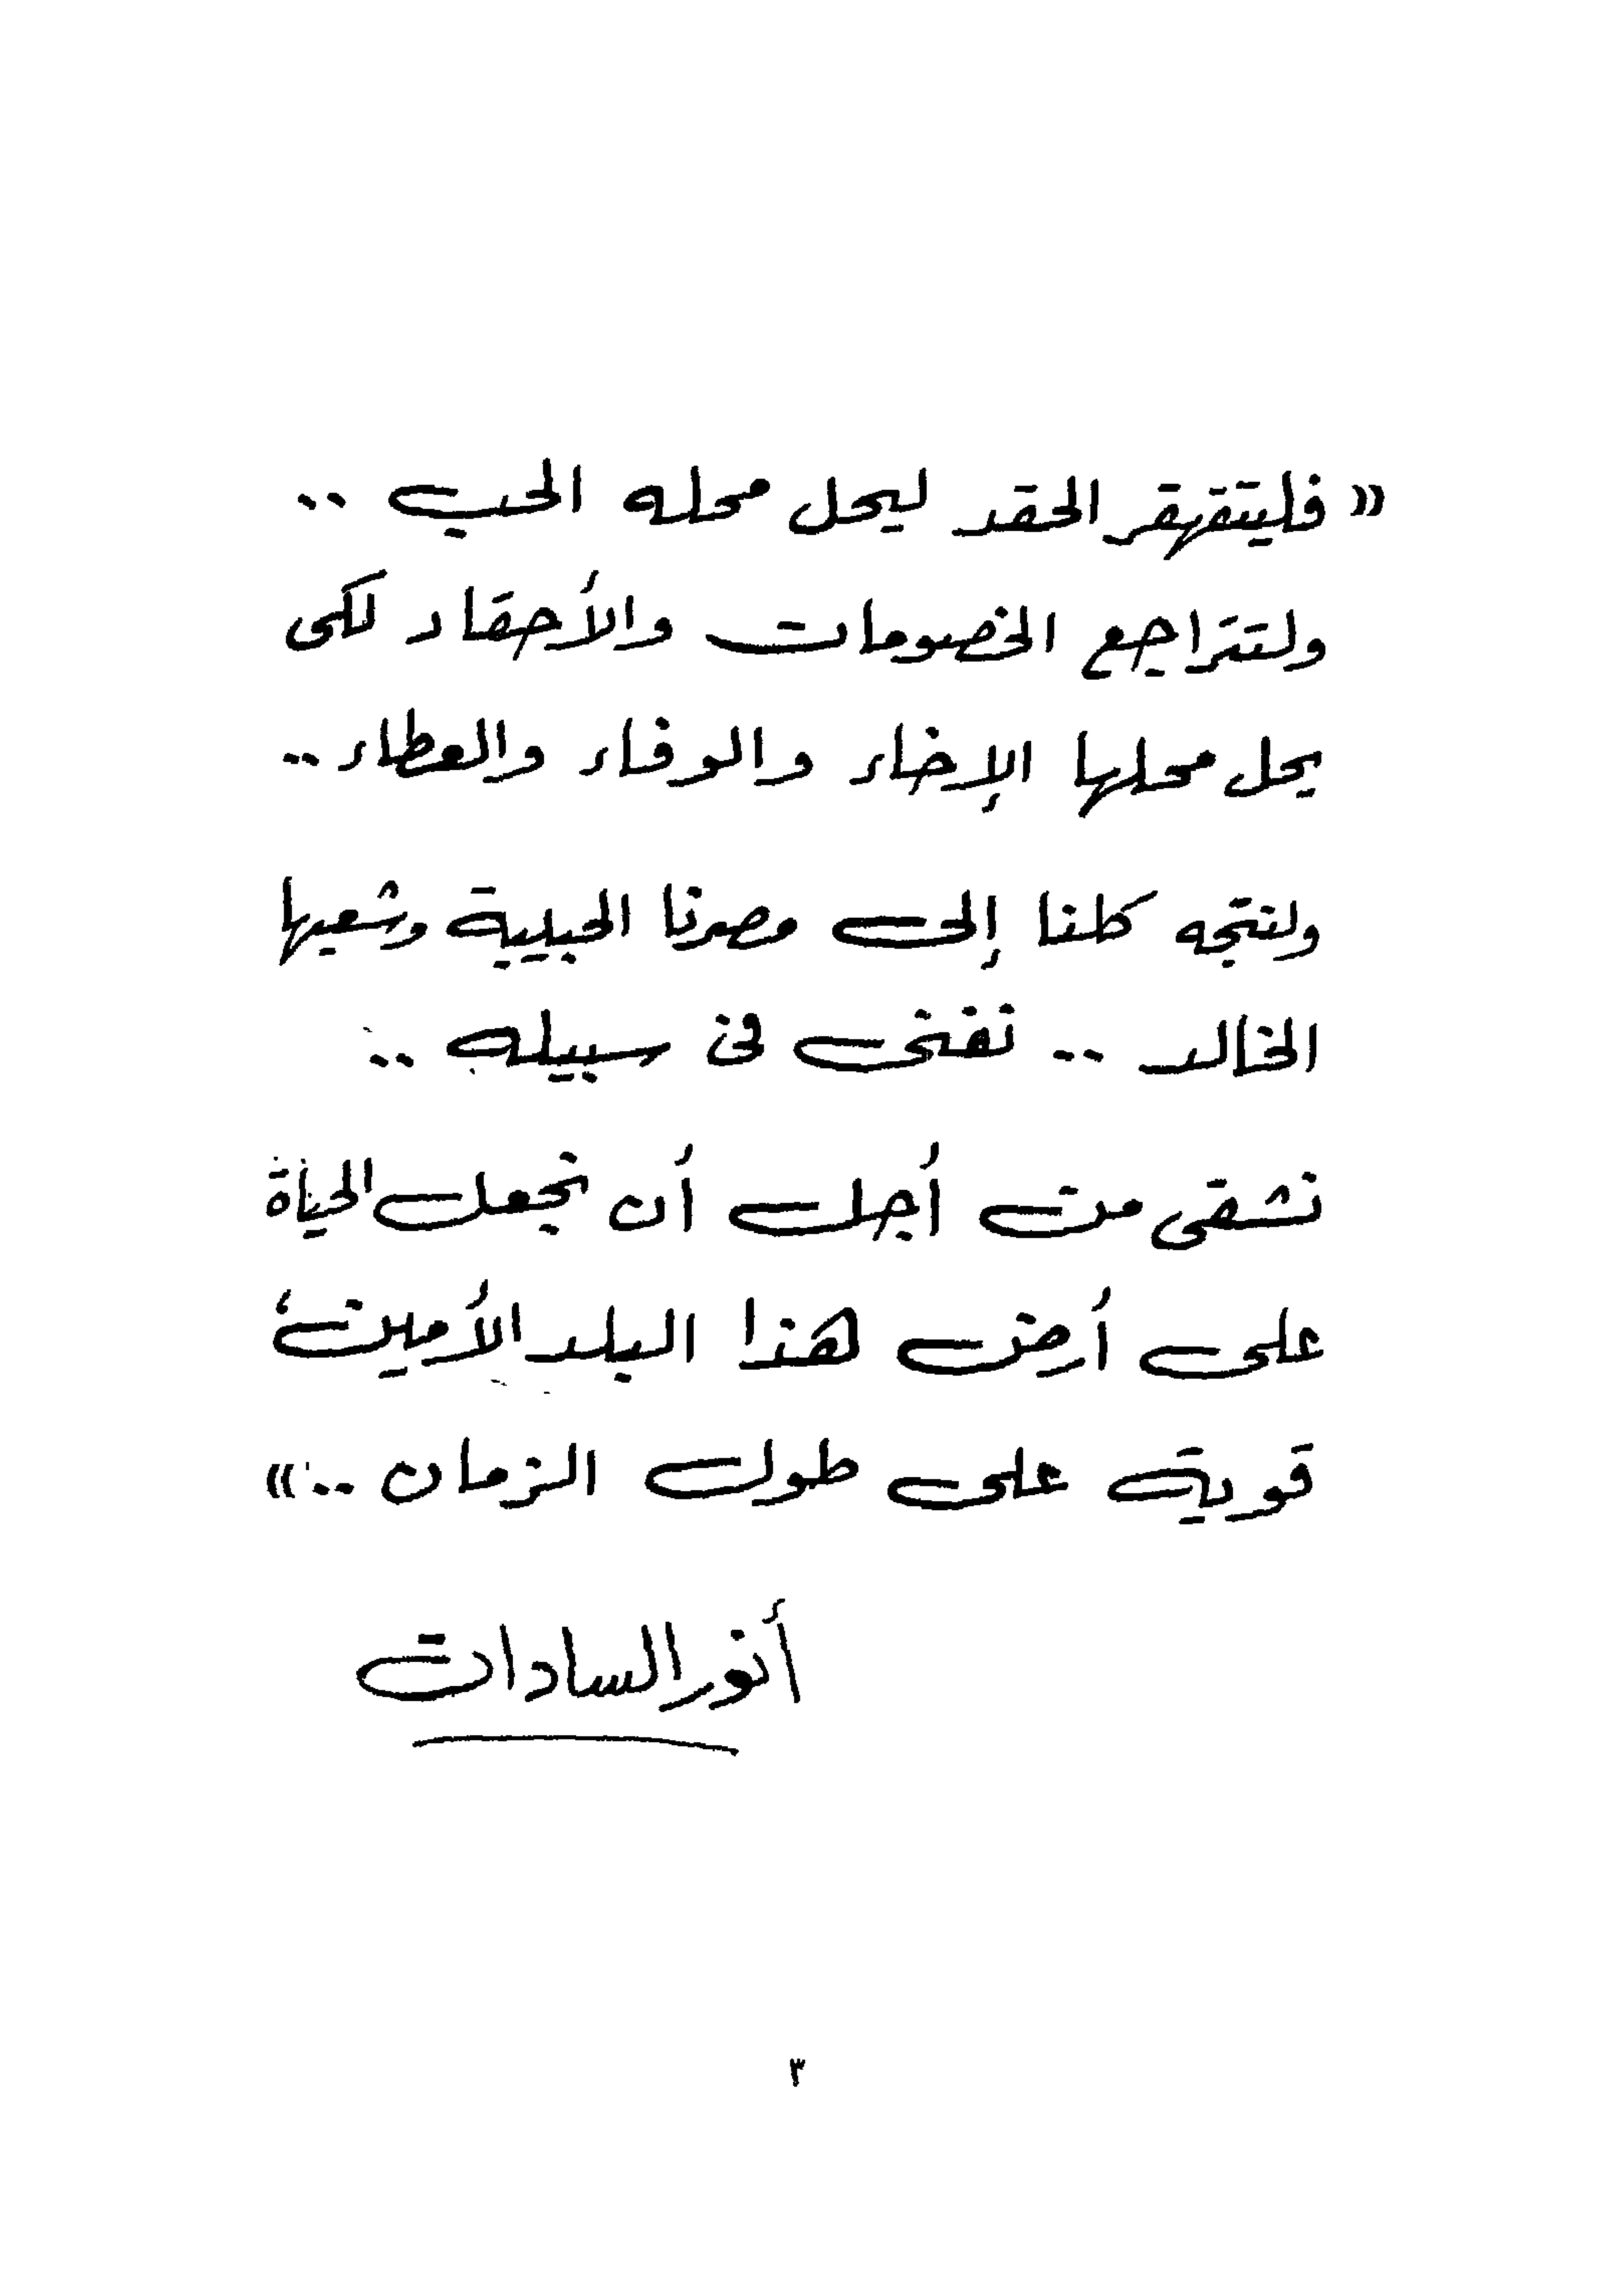 « فليتقهقر الحقد ليحل محله الحب ..
ولتتراجع الخصومات والأحقاد لكى
يحل محلها الإخاء والوفاء والعطاء ..
ولنتجه كلنا إلى مصرنا الحبيبة وشعبها
الخالد .. نفنى فى سبيله ..
نشقى من أجل أن نجعل الحياة
على أرض هذا البلد الأمين،
قوية على طول الزمان .. »
أنور السادات
٣